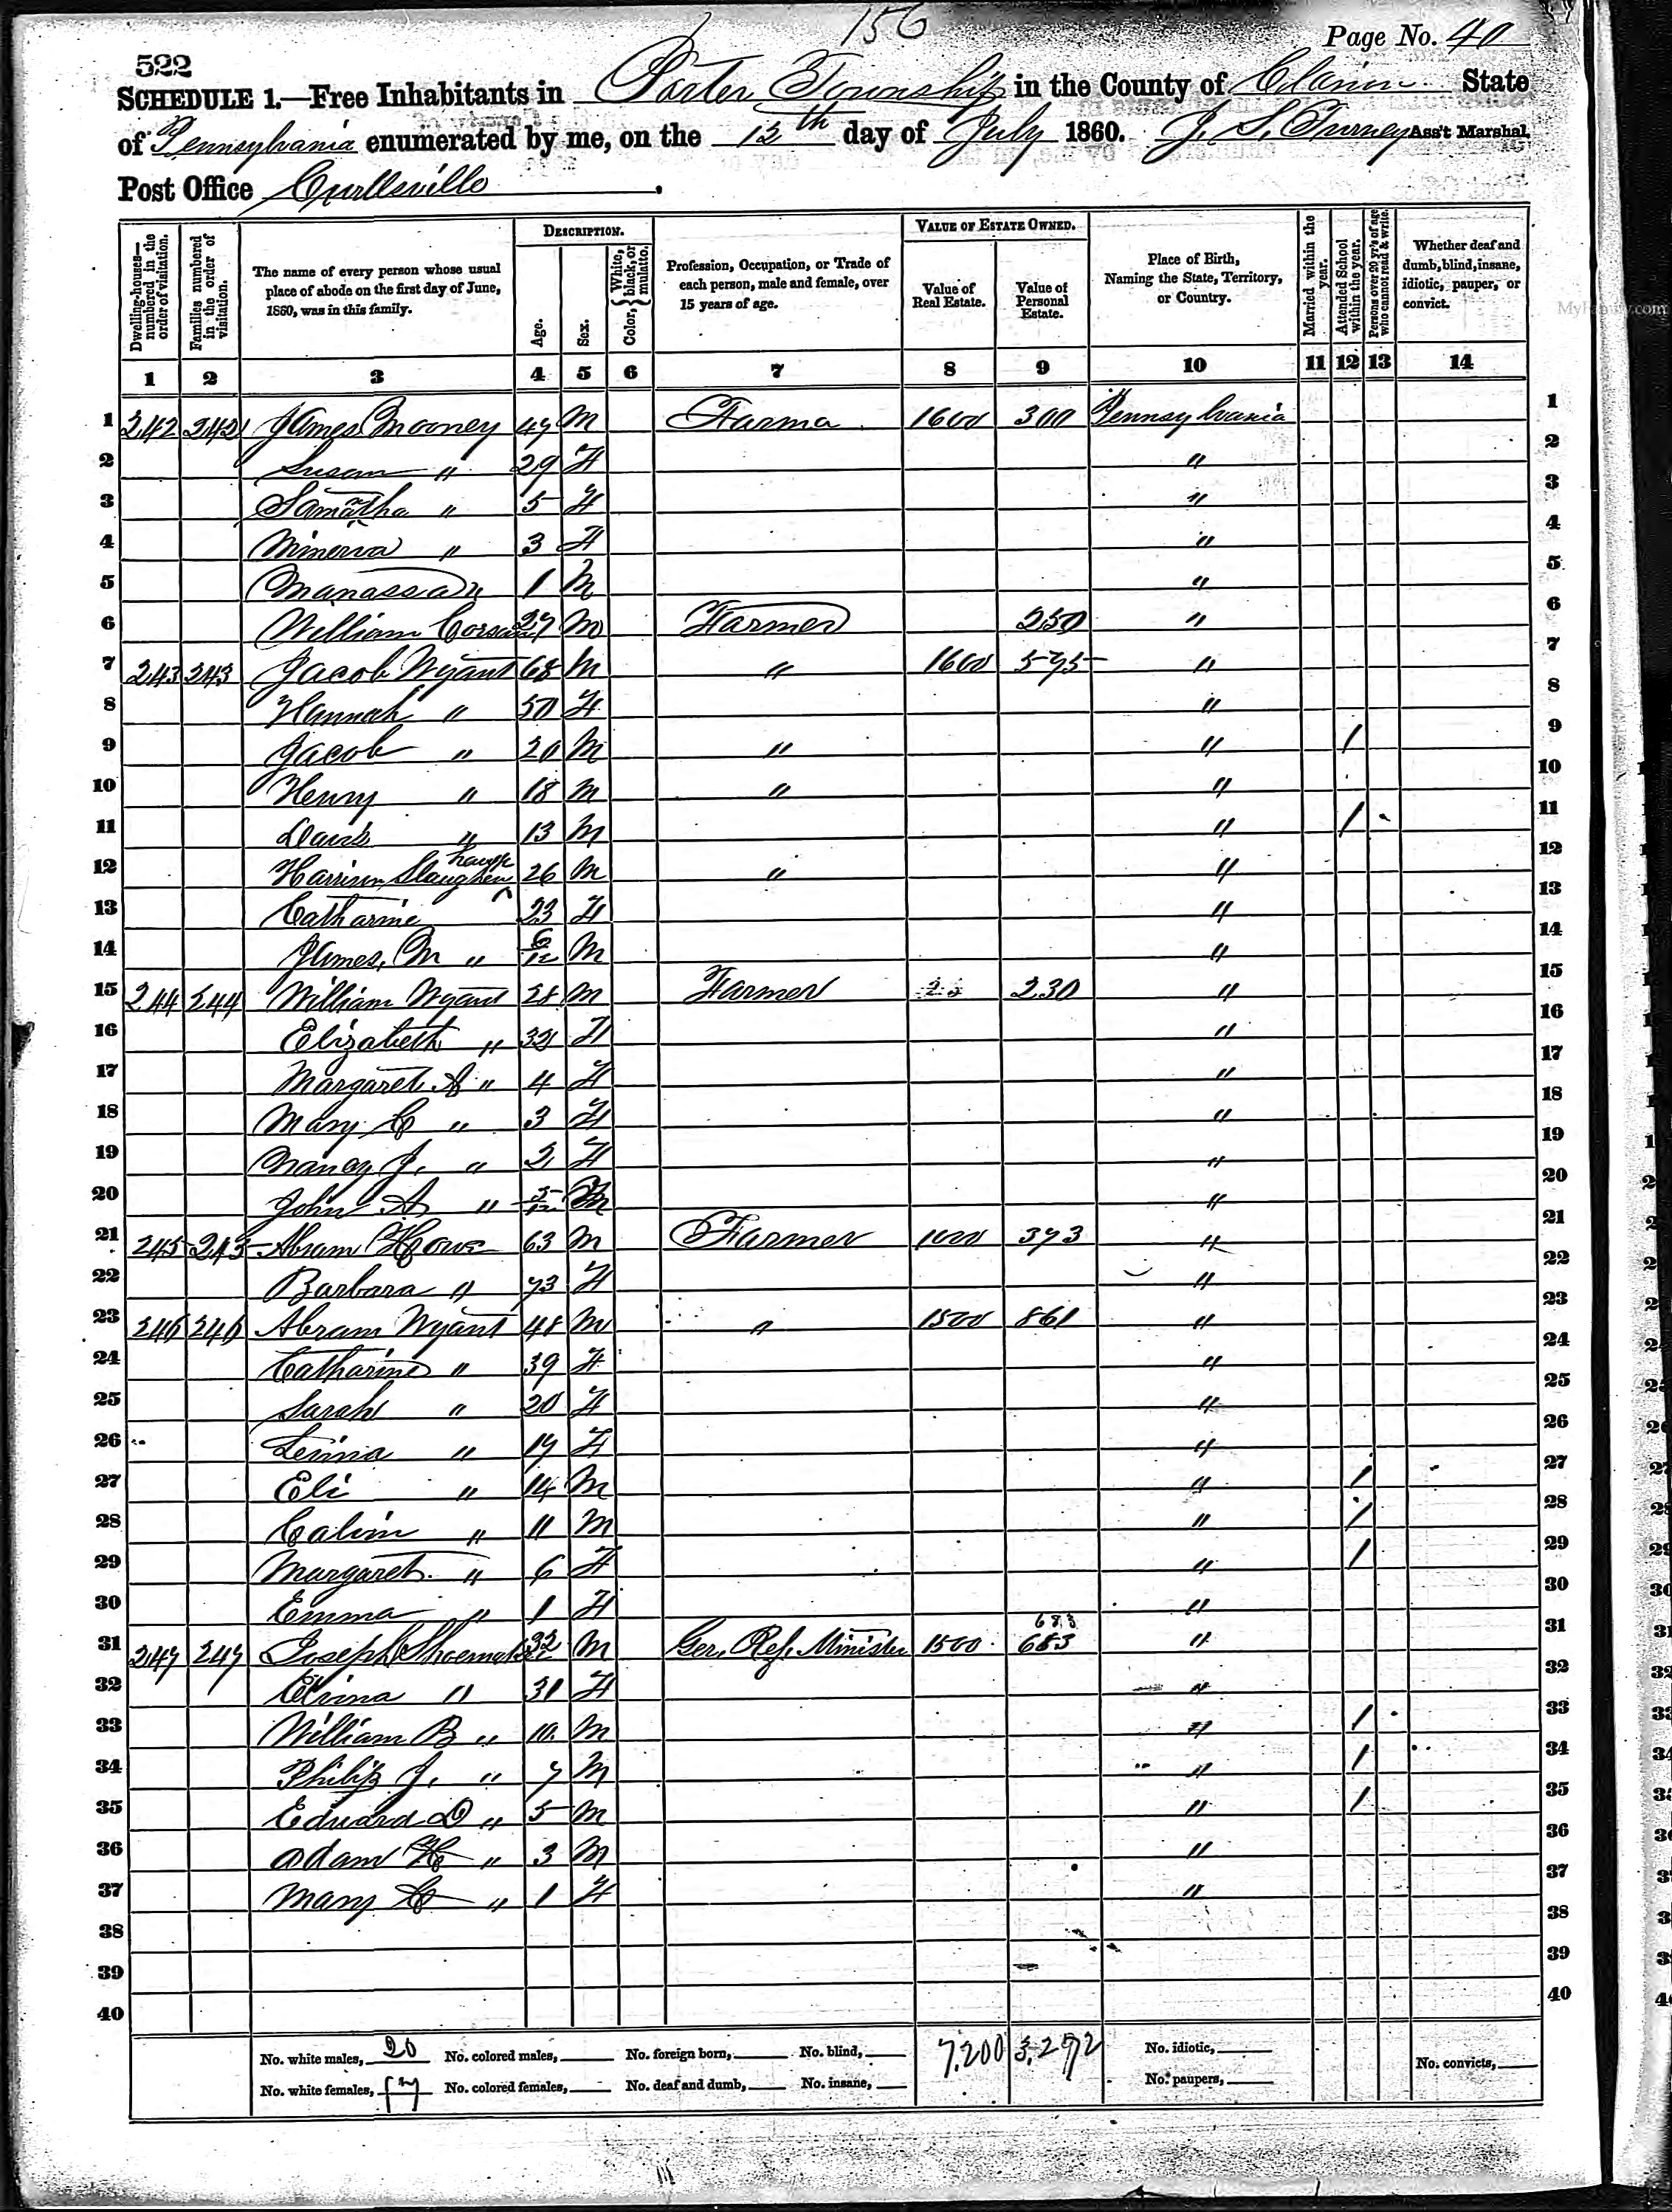 156
Page No. 40
522
SCHEDULE 1.—Free Inhabitants in Porter Township in the County of Clarion State
of Pennsylvania enumerated by me, on the 12th day of July 1860. J. S. Turney Ass't Marshal.
Post Office Curllsville.
Dwelling-houses—numbered in the order of visitation.
Families numbered in the order of visitation.
The name of every person whose usual place of abode on the first day of June, 1860, was in this family.
DESCRIPTION.
Age.
Sex.
Color, { White, black, or mulatto.
Profession, Occupation, or Trade of each person, male and female, over 15 years of age.
VALUE OF ESTATE OWNED.
Value of Real Estate.
Value of Personal Estate.
Place of Birth, Naming the State, Territory, or Country.
Married within the year.
Attended School within the year.
Persons over 20 y'rs of age who cannot read & write.
Whether deaf and dumb, blind, insane, idiotic, pauper, or convict.
MyFamily.com
1 2 3 4 5 6 7 8 9 10 11 12 13 14
1 242 242 James Mooney 49 M Farma 1600 300 Pennsylvania 1
2 Susan " 29 F " 2
3 Samatha " 5 F " 3
4 Minerva " 3 F " 4
5 Manassa " 1 M " 5
6 William 27 M Farmer 250 " 6
7 243 243 Jacob Wyant 68 M " 1600 575 " 7
8 Hannah " 50 F " 8
9 Jacob " 20 M " " / 9
10 Henry " 18 M " " 10
11 David " 13 M " / 11
12 Harrison 26 M " " 12
13 Catharine 23 F " 13
14 James, M " 6/12 M " 14
15 244 244 William Wyant 28 M Farmer 230 " 15
16 Elizabeth " 32 F " 16
17 Margaret A " 4 F " 17
18 Mary C " 3 F " 18
19 Nancy J. " 2 F " 19
20 John A " 5/12 M " 20
21 245 245 Abram 63 M Farmer 1000 373 " 21
22 Barbara " 73 F " 22
23 246 246 Abram Wyant 48 M " 1500 861 " 23
24 Catharine " 39 F " 24
25 Sarah " 20 F " 25
26 " 17 F " 26
27 Eli " 14 M " / 27
28 Calvin " 11 M " / 28
29 Margaret " 6 F " / 29
30 Emma " 1 F " 30
31 247 247 Joseph Shoemaker 32 M Ger. Ref. Minister 1500 683 683 " 31
32 Elvina " 31 F " 32
33 William B " 10 M " / 33
34 Philip J. " 7 M " / 34
35 Edward D " 5 M " / 35
36 Adam H " 3 M " 36
37 Mary C " 1 F " 37
38 38
39 39
40 40
No. white males, 20 No. colored males, No. foreign born, No. blind, 7,200 3,272 No. idiotic, No. convicts,
No. white females, 17 No. colored females, No. deaf and dumb, No. insane, No. paupers,